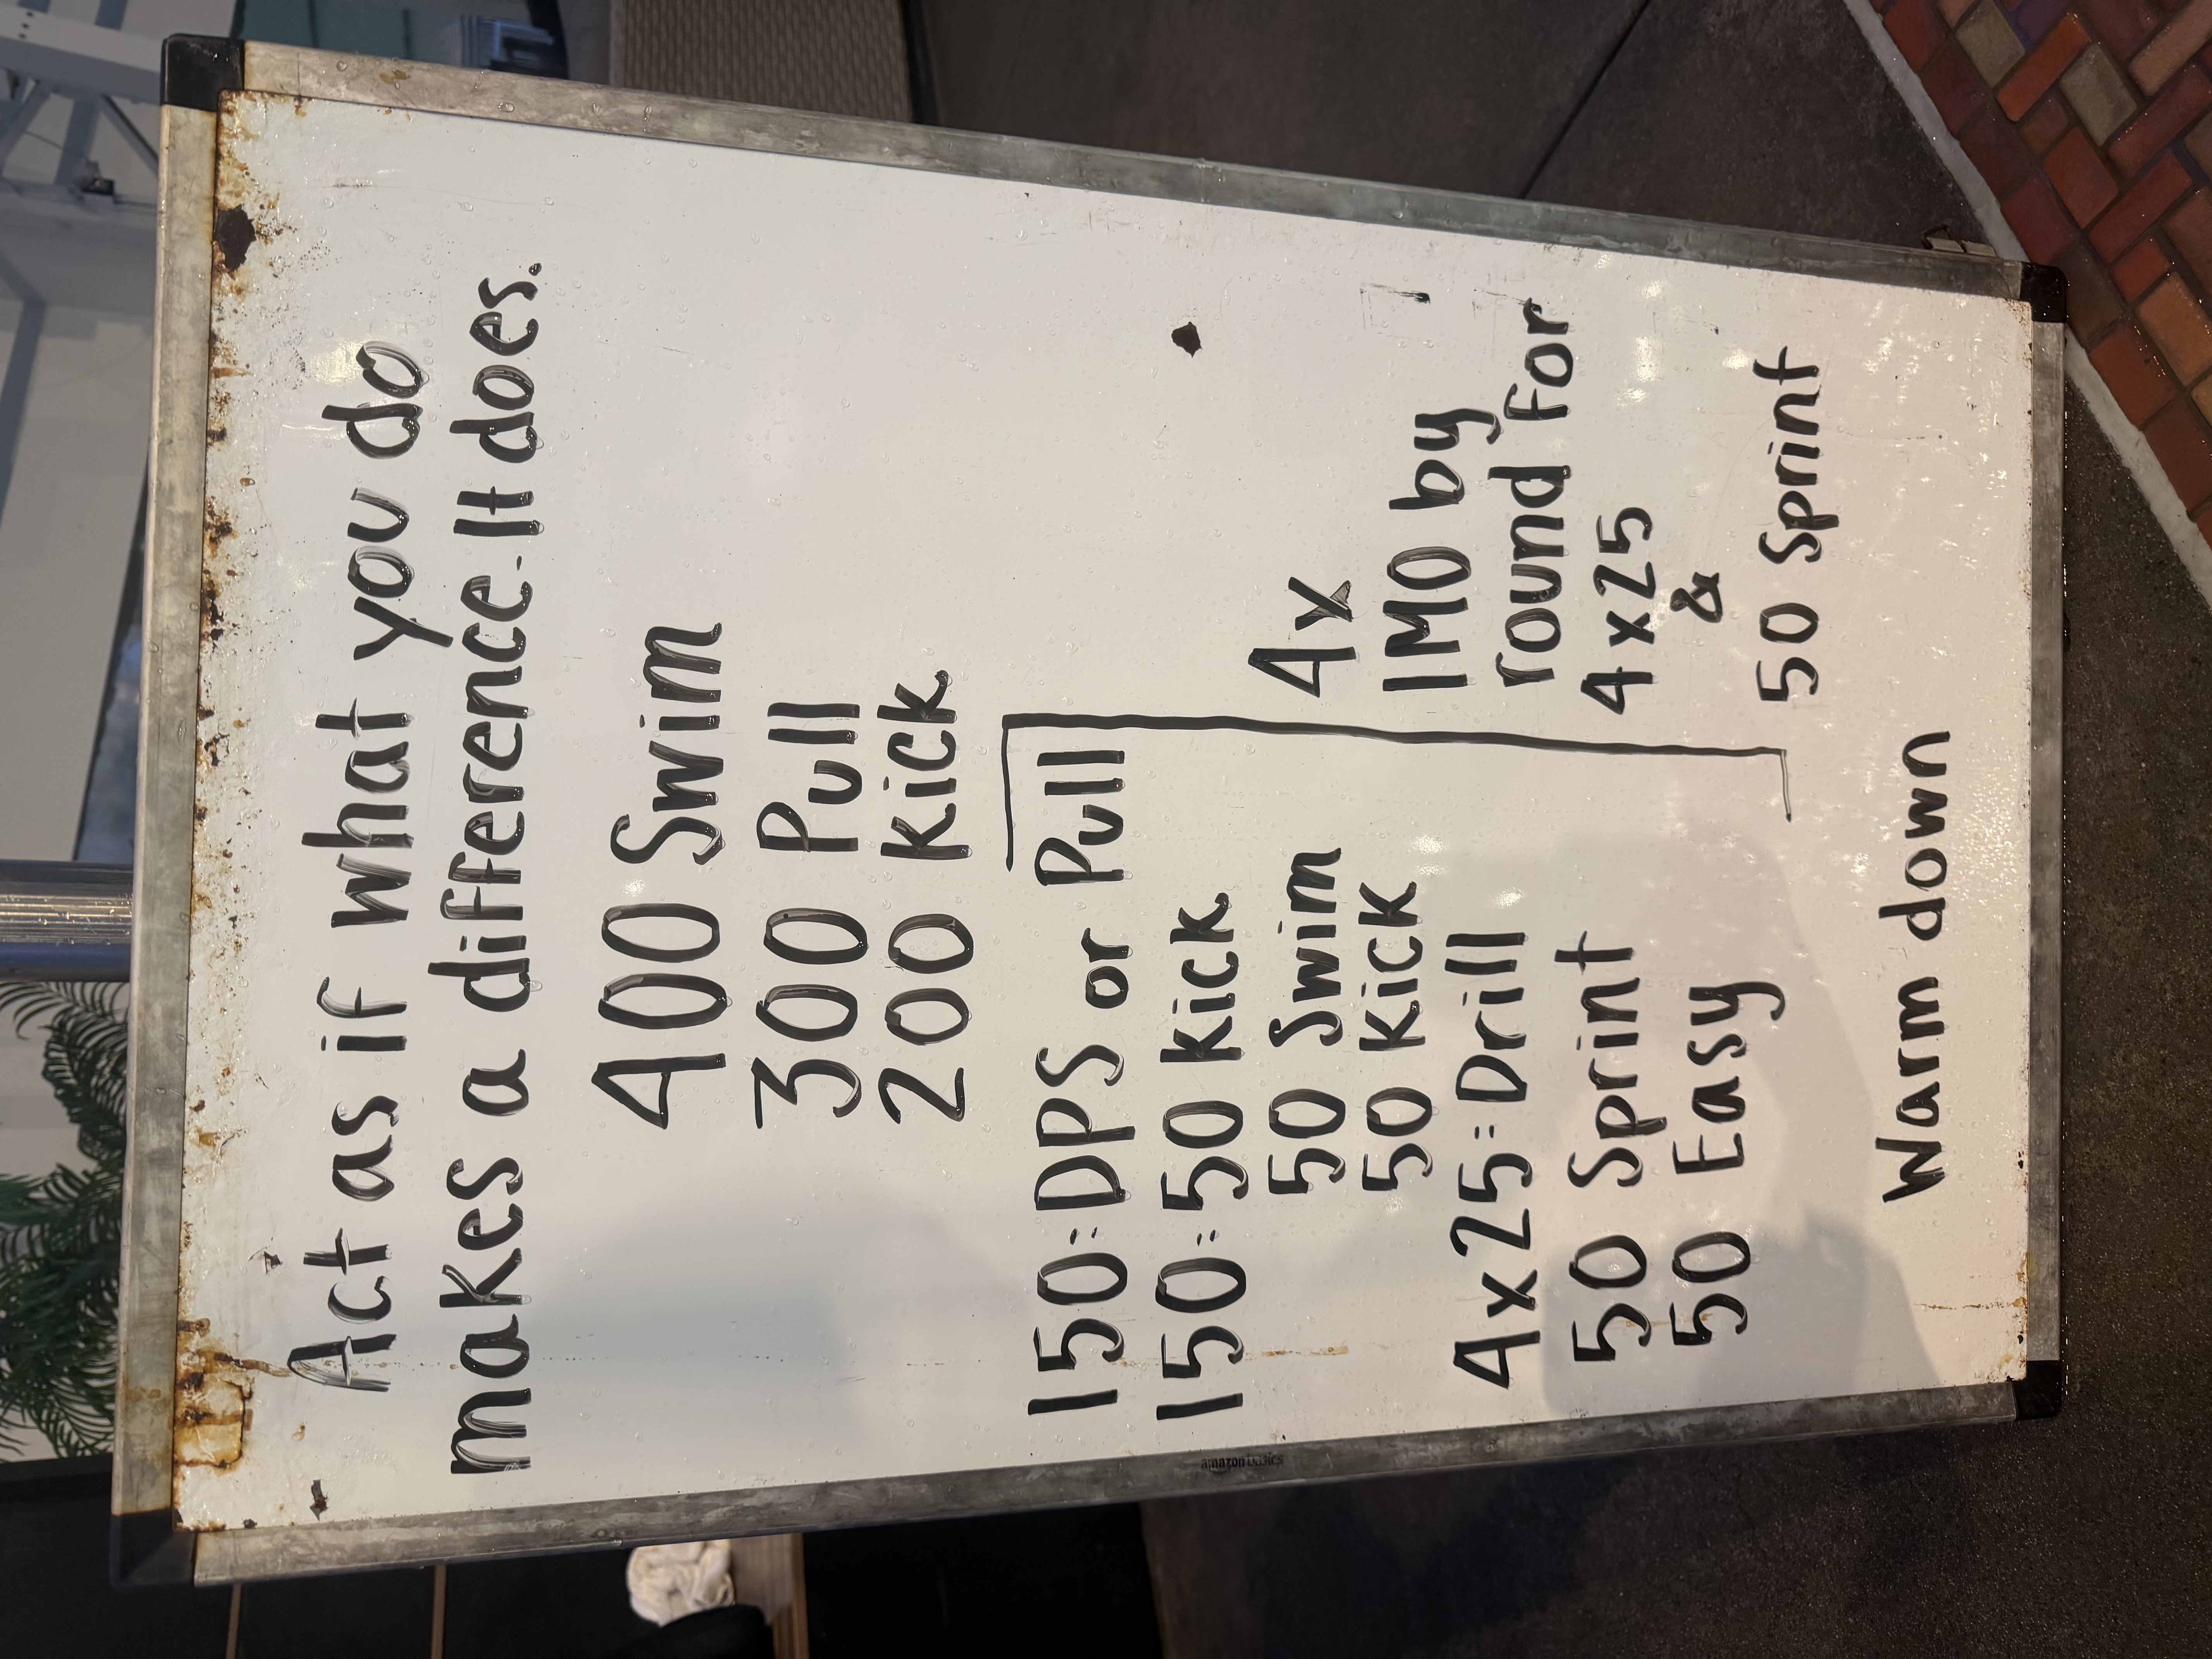 Act as if what you do
makes a difference. It does.
400 Swim
300 Pull
200 Kick
150 = DPS or Pull
150 = 50 Kick
50 Swim
50 Kick
4x25 = Drill
50 Sprint
50 Easy
4x
IMO by
round for
4x25
&
50 Sprint
Warm down
amazon basics